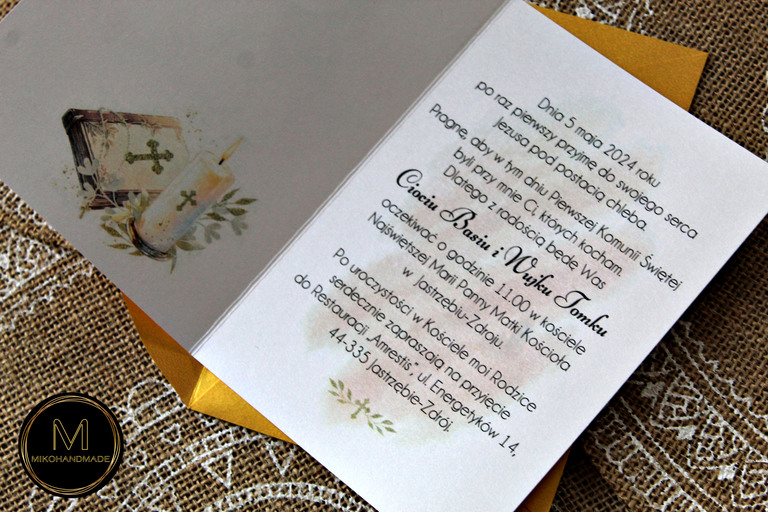 Dnia 5 maja 2024 roku
po raz pierwszy przyjmę do swojego serca
Jezusa pod postacią chleba.
Pragnę, aby w tym dniu Pierwszej Komunii Świętej
byli przy mnie Ci, których kocham.
Dlatego z radością będę Was
Ciociu Basiu i Wujku Tomku
oczekiwać o godzinie 11.00 w kościele
Najświętszej Marii Panny Matki Kościoła
w Jastrzębiu-Zdroju.
Po uroczystości w Kościele moi Rodzice
serdecznie zapraszają na przyjęcie
do Restauracji „Amrestis”, ul. Energetyków 14,
44-335 Jastrzębie-Zdrój
M
MIKOHANDMADE